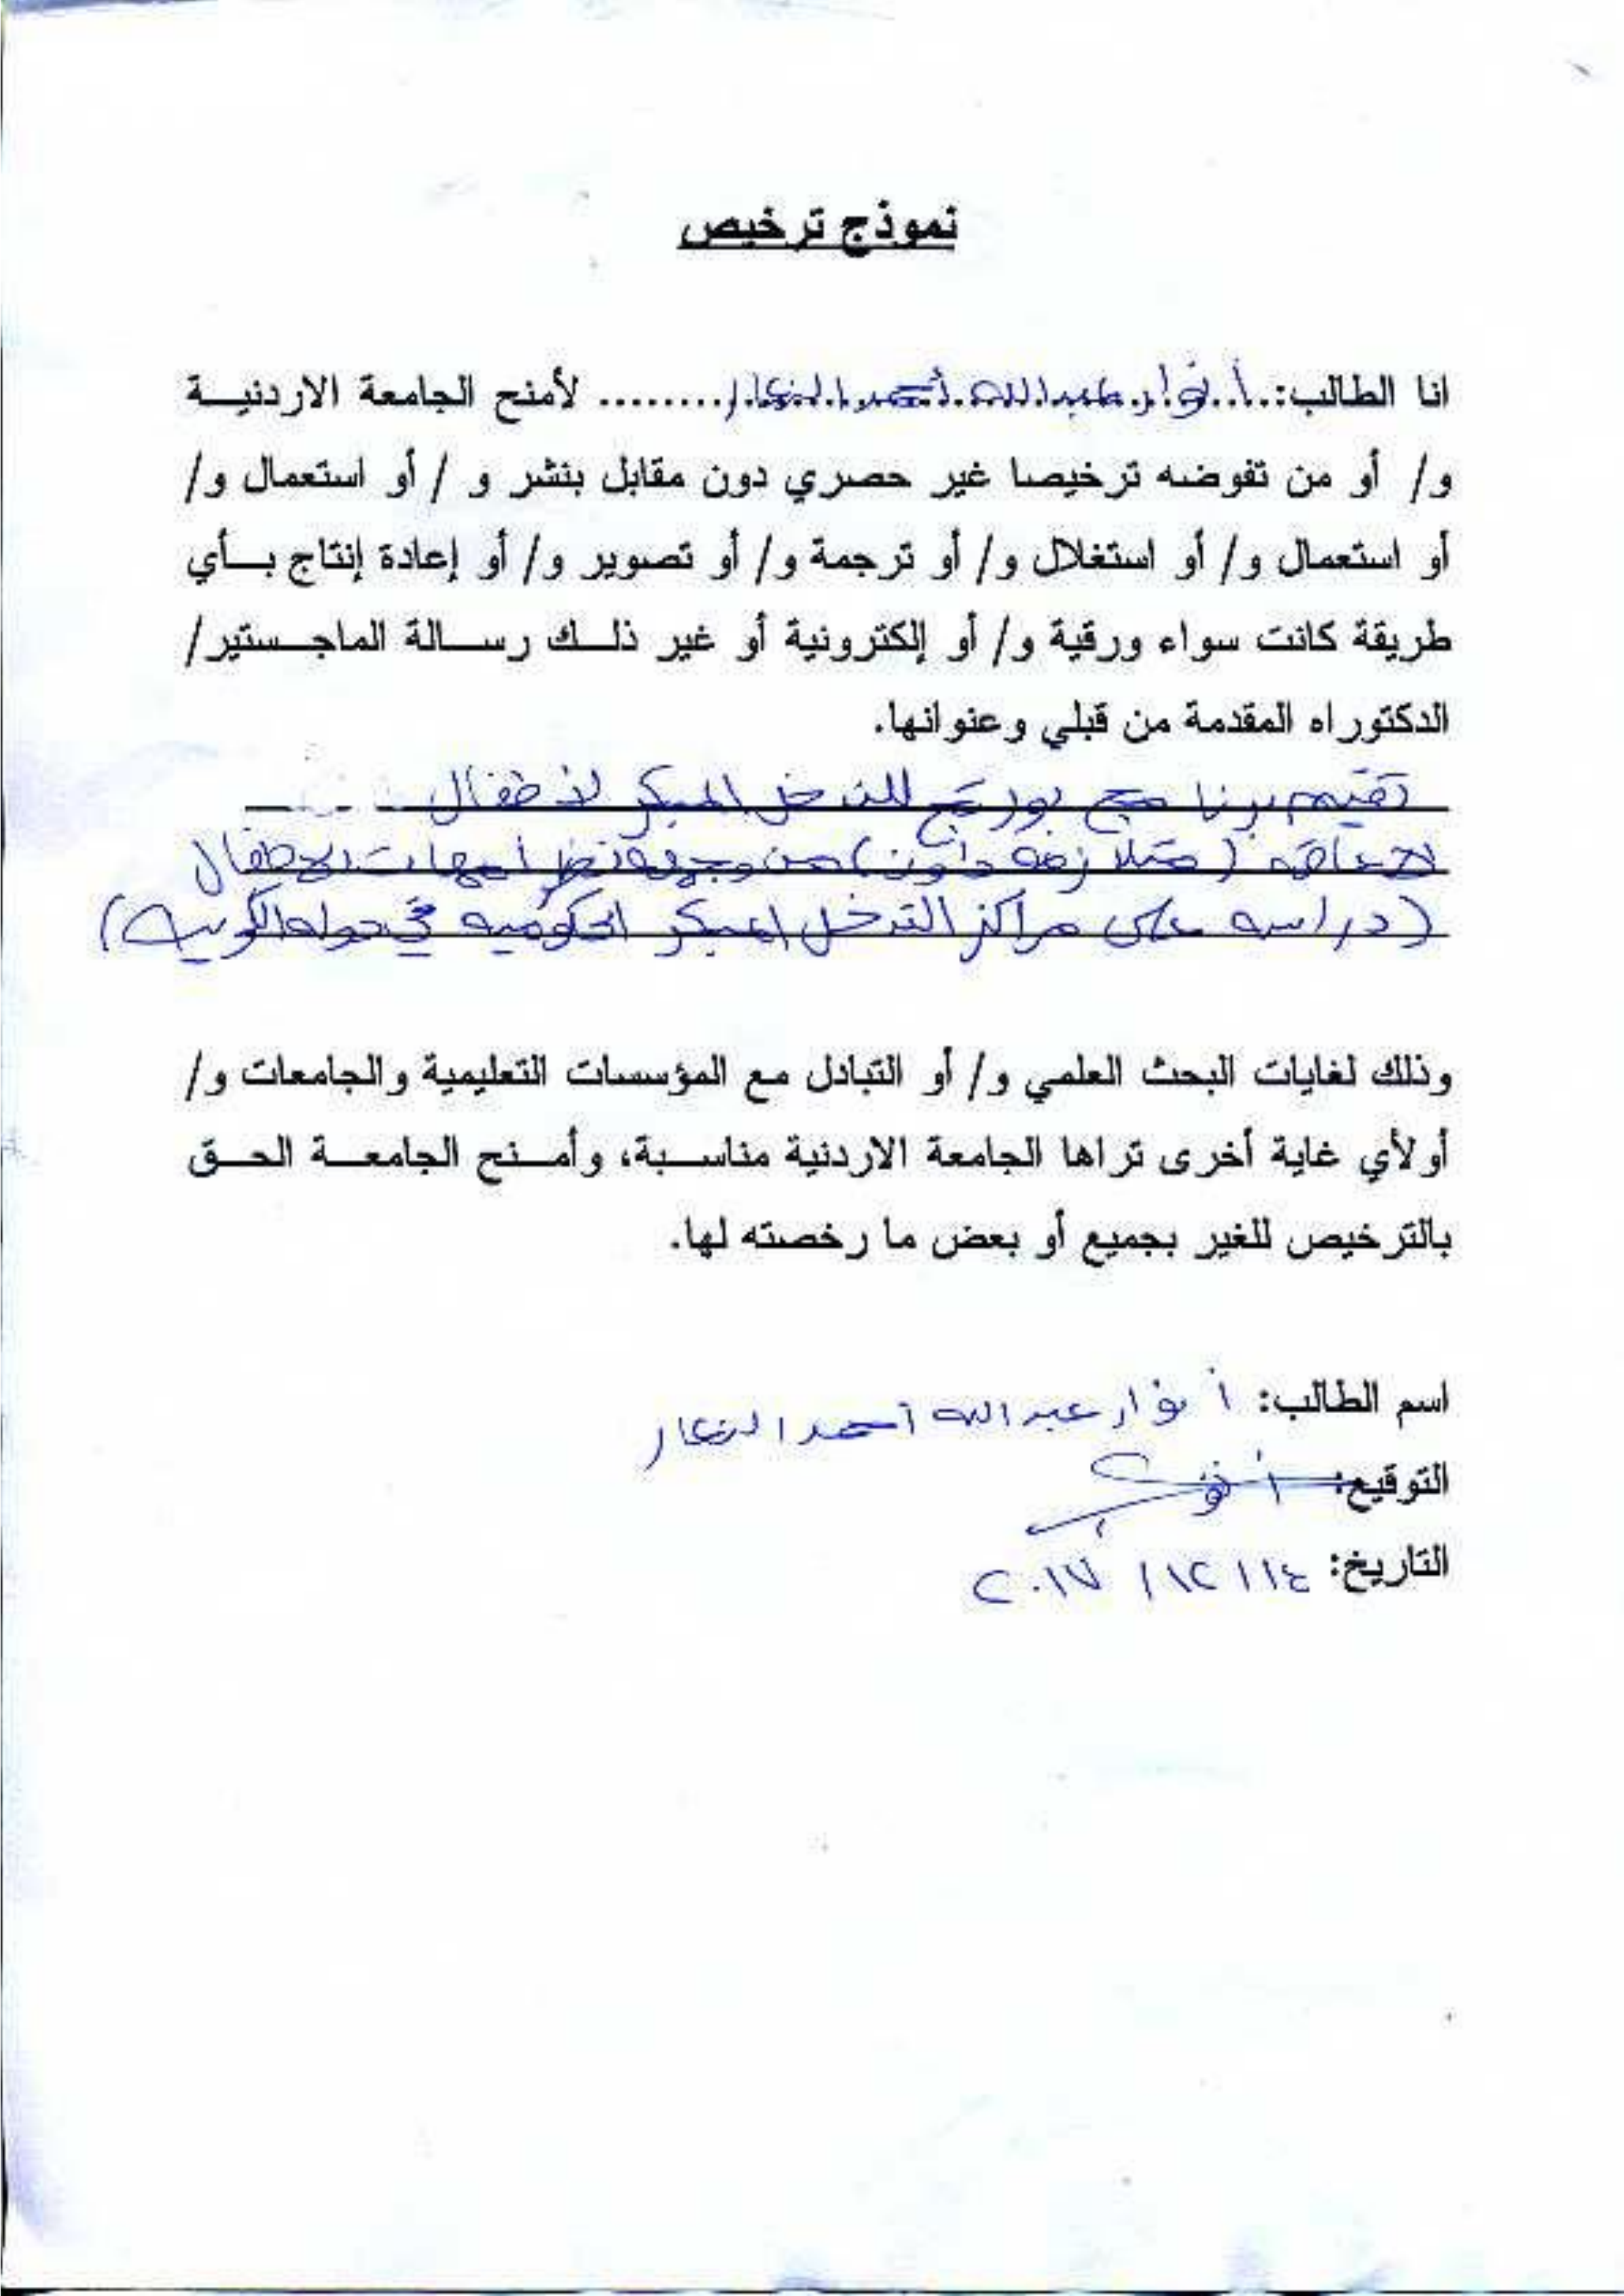 نموذج ترخيص
انا الطالب: أنوار عبدالله أحمد النجار ........ لأمنح الجامعة الاردنية
و/ أو من تفوضه ترخيصا غير حصري دون مقابل بنشر و / أو استعمال و/
أو استعمال و/ أو استغلال و/ أو ترجمة و/ أو تصوير و/ أو إعادة إنتاج بأي
طريقة كانت سواء ورقية و/ أو إلكترونية أو غير ذلك رسالة الماجستير/
الدكتوراه المقدمة من قبلي وعنوانها.
تقييم برنامج بورتج للتدخل المبكر لأطفال
الاعاقه (متلازمه داون) من وجهه نظر أمهات الاطفال
(دراسه على مراكز التدخل المبكر الحكوميه في دوله الكويت)
وذلك لغايات البحث العلمي و/ أو التبادل مع المؤسسات التعليمية والجامعات و/
أو لأي غاية أخرى تراها الجامعة الاردنية مناسبة، وأمنح الجامعة الحق
بالترخيص للغير بجميع أو بعض ما رخصته لها.
اسم الطالب: أنوار عبدالله أحمد النجار
التوقيع:
التاريخ: ١٤ / ١٢ / ٢٠١٧